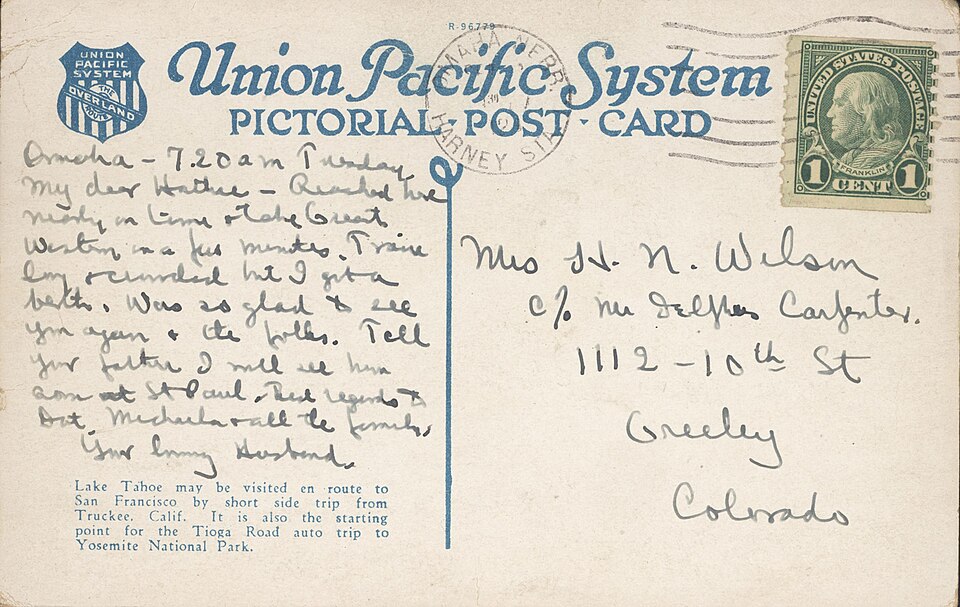 R-96779
UNION
PACIFIC
SYSTEM
THE
OVERLAND
ROUTE
Union Pacific System
PICTORIAL - POST - CARD
OMAHA, NEBR.
HARNEY STA.
UNITED STATES POSTAGE
FRANKLIN
1 CENT 1
Omaha - 7.20 am Tuesday
My dear Hattie - Reached here
nearly on time & take Great
Western in a few minutes. Train
long & crowded but I got a
berth. Was so glad to see
you again & the folks. Tell
your father I will see him
soon at St Paul. Best regards to
Dot, Michaela & all the family.
Your loving Husband.
Mrs H. N. Wilson
c/o Mr Delphus Carpenter.
1112 - 10th St
Greeley
Colorado
Lake Tahoe may be visited en route to
San Francisco by short side trip from
Truckee, Calif. It is also the starting
point for the Tioga Road auto trip to
Yosemite National Park.